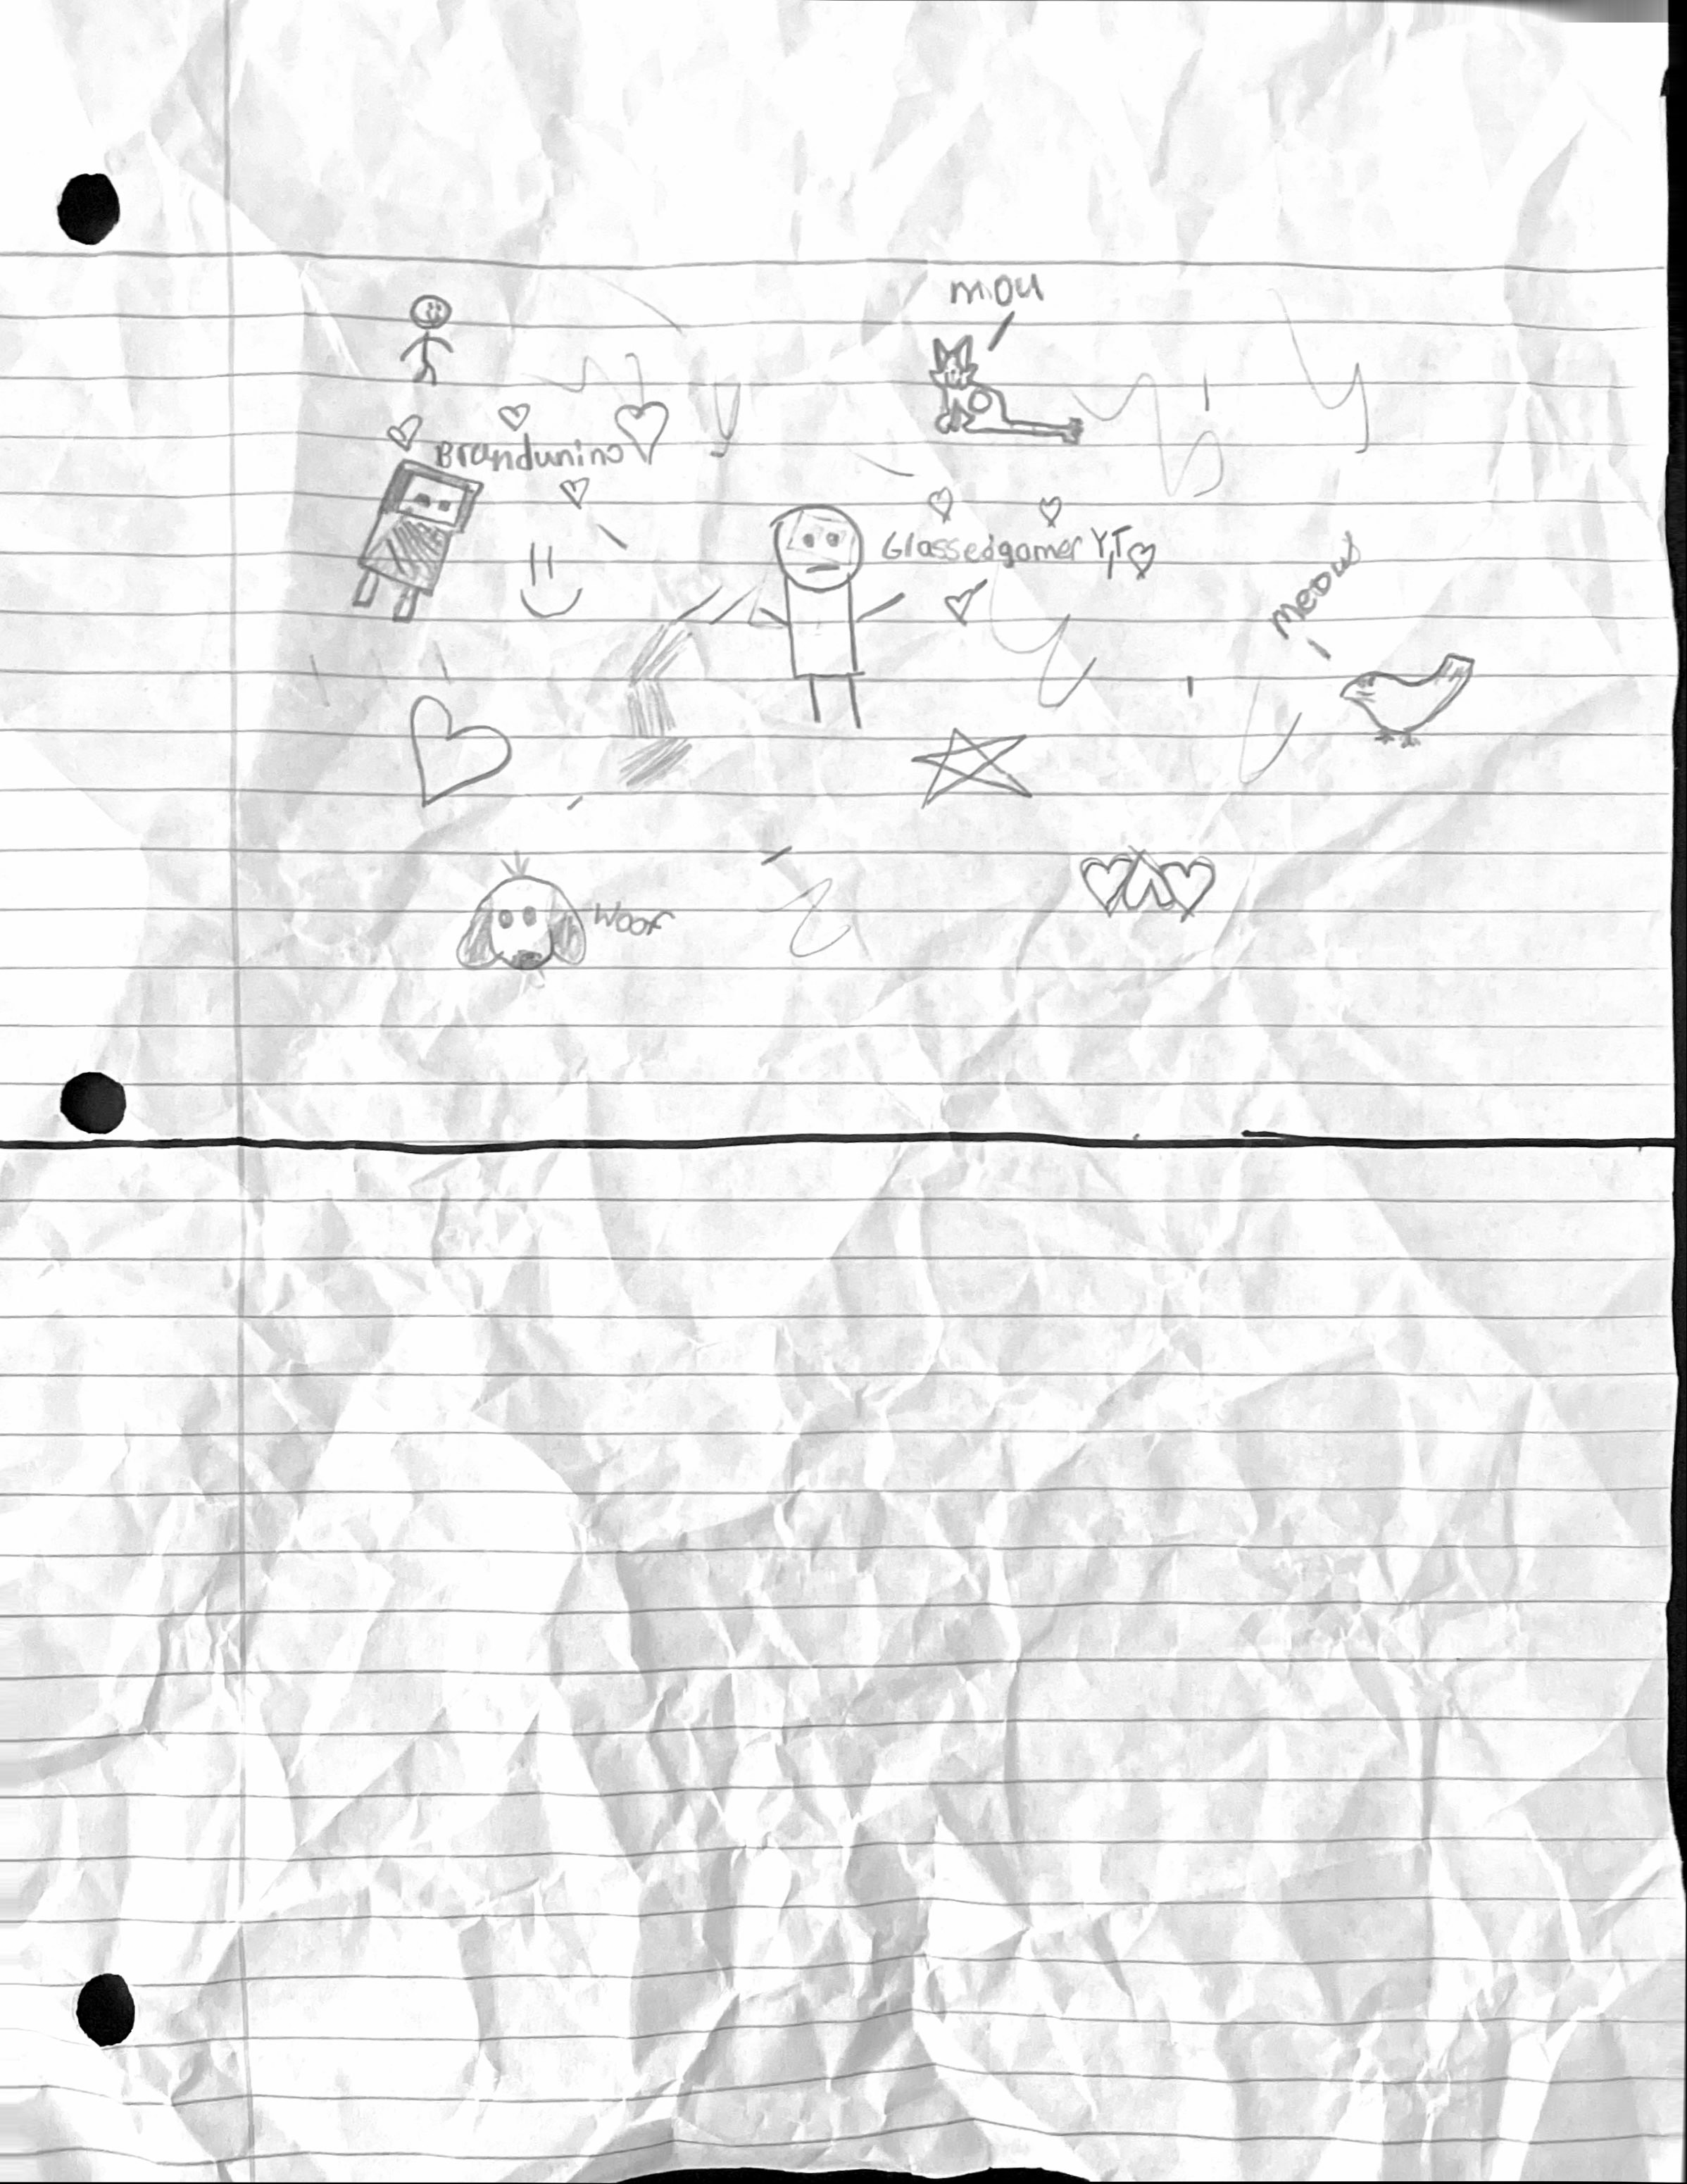 mou
Brandunino
Glassedgamer YT
meow
Woof